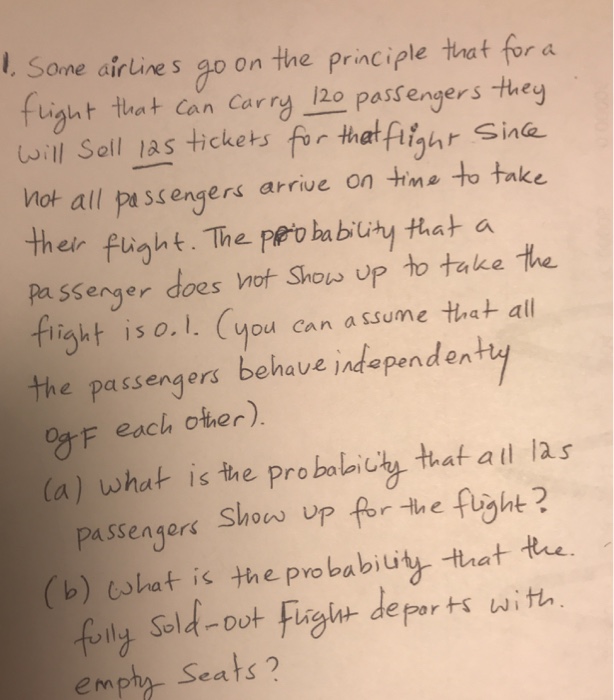 1. Some airlines go on the principle that for a
flight that can carry 120 passengers they
will sell 125 tickets for that flight since
not all passengers arrive on time to take
their flight. The probability that a
passenger does not show up to take the
flight is 0.1. (you can assume that all
the passengers behave independently
of each other).
(a) what is the probability that all 125
passengers show up for the flight?
(b) what is the probability that the.
fully sold-out flight departs with.
empty seats?